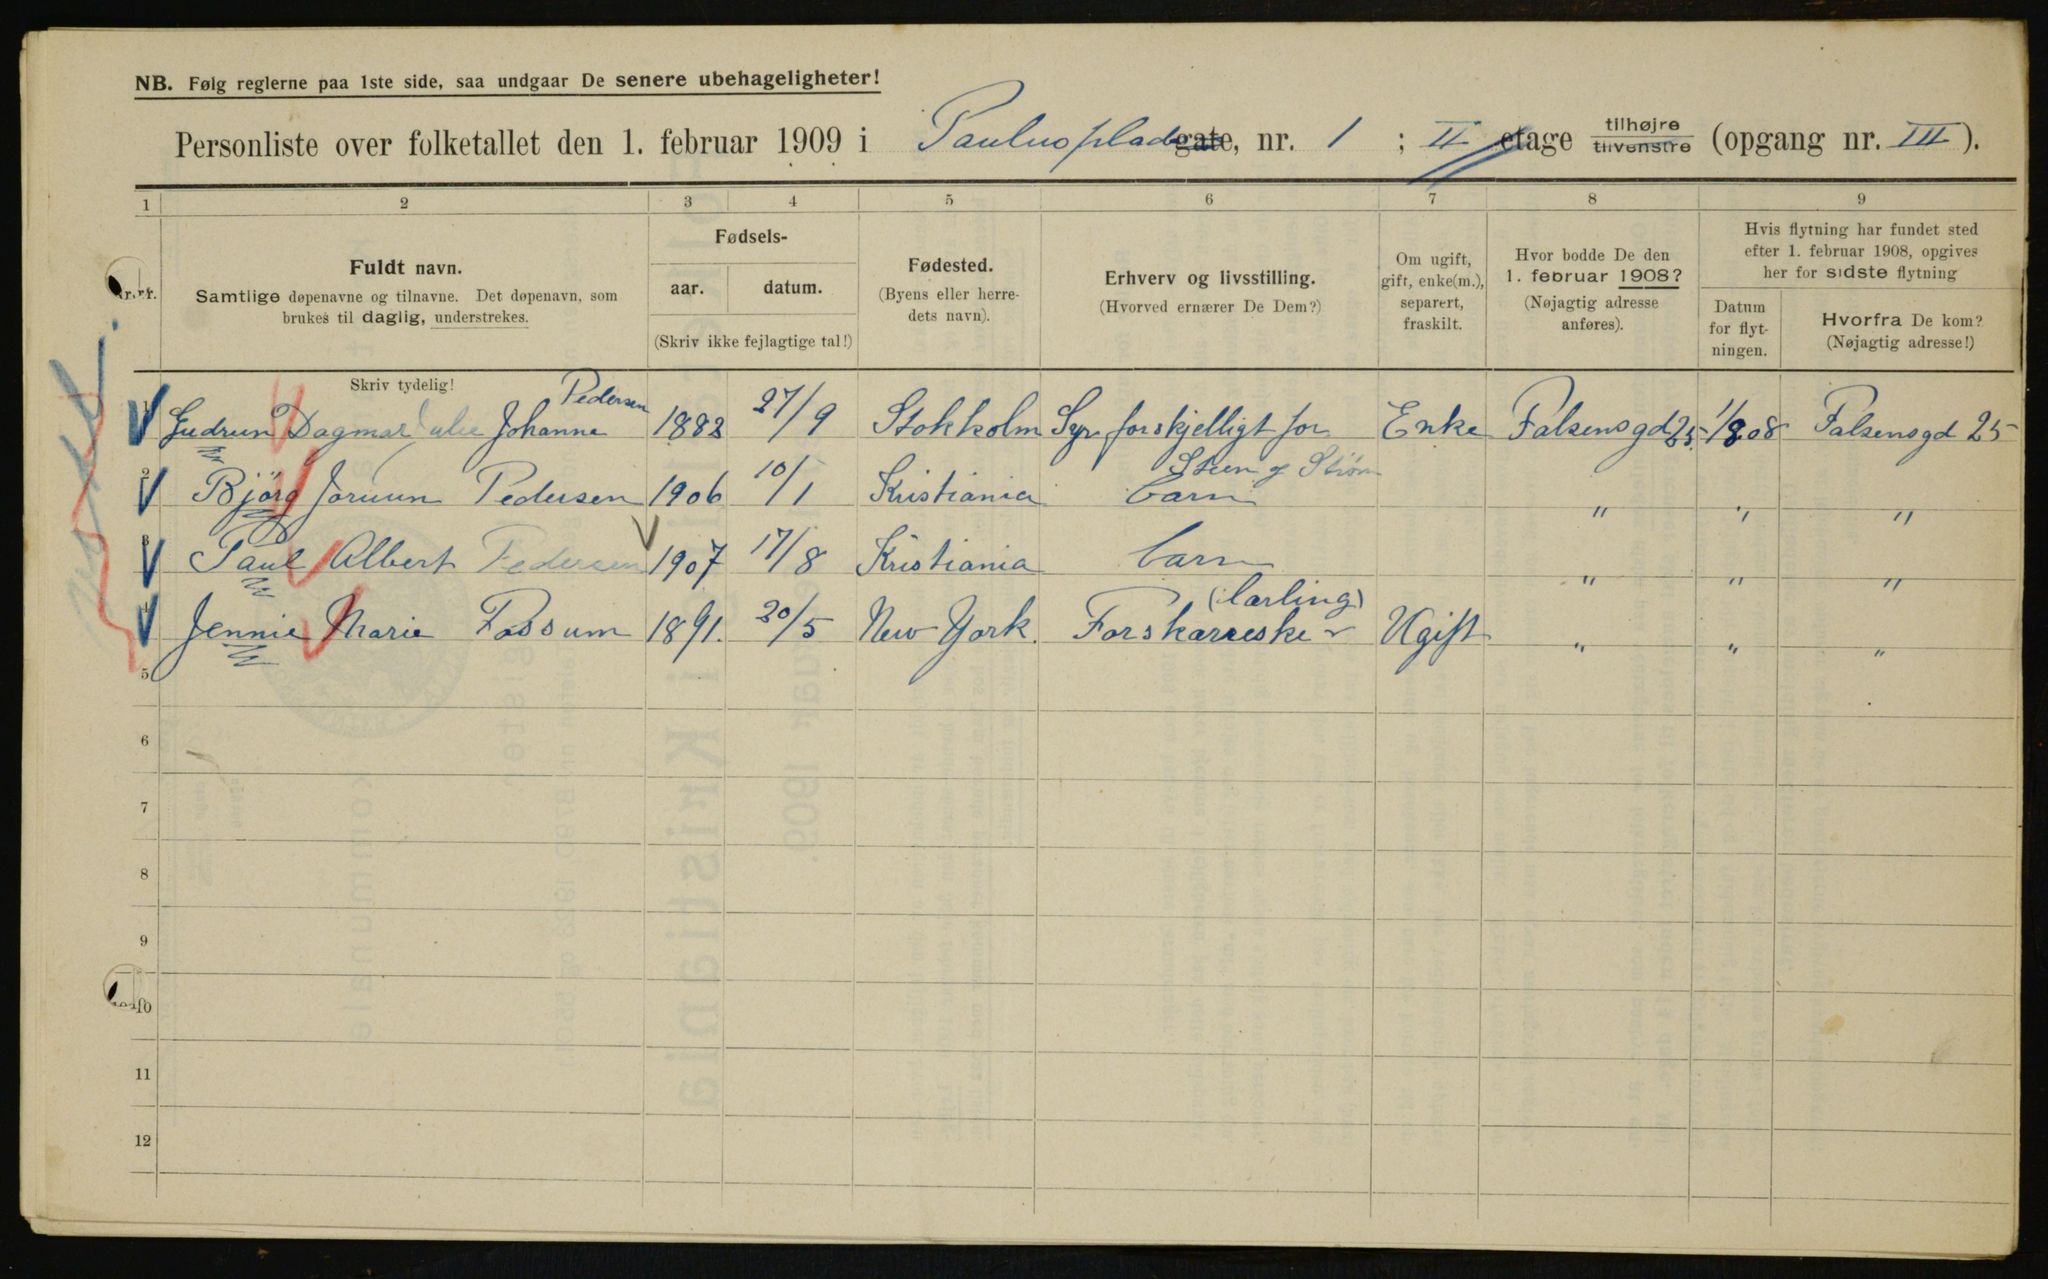 NB. Følg reglerne paa 1ste side, saa undgaar De senere ubehageligheter!
Personliste over folketallet den 1. februar 1909 i Paulusplads gate, nr. 1 ; II etage tilhøjre tilvenstre (opgang nr. III).
1 2 3 4 5 6 7 8 9
Nr.
Fuldt navn.
Samtlige døpenavne og tilnavne. Det døpenavn, som
brukes til daglig, understrekes.
Skriv tydelig!
Fødsels-
aar. datum.
(Skriv ikke fejlagtige tal!)
Fødested.
(Byens eller herre-
dets navn).
Erhverv og livsstilling.
(Hvorved ernærer De Dem?)
Om ugift,
gift, enke(m.),
separert,
fraskilt.
Hvor bodde De den
1. februar 1908?
(Nøjagtig adresse
anføres).
Hvis flytning har fundet sted
efter 1. februar 1908, opgives
her for sidste flytning
Datum
for flyt-
ningen.
Hvorfra De kom?
(Nøjagtig adresse!)
1 Gudrun Dagmar Julie Johanne Pedersen 1882 27/9 Stokkolm Syr forskjelligt for Steen & Strøm Enke Falsensgd 25 1/8 08 Falsensgd 25
2 Bjørg Jorunn Pedersen 1906 10/1 Kristiania barn " " "
3 Paul Albert Pedersen 1907 17/8 Kristiania barn " " "
4 Jennie Marie Fossum 1891. 20/5 New York. Forskærreske (lærling) Ugift " " "
5
6
7
8
9
10
11
12